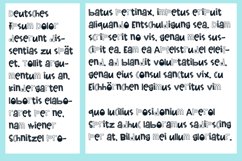 Deutsches
Ipsum Dolor
deserunt dis-
sentias zu spät
et. Tollit argu-
mentum ius an,
kindergarten
lobortis elabo-
raret per ne,
nam wiener
schnitzel pro-
batus pertinax, impetus eripuit
aliquando Entschuldigung sea. Diam
scripserit no vis, genau meis sus-
cipit ea. Eam ea Apfelstrudel eleif-
end, ad blandit voluptatibus sed.
genau eius consul sanctus vix, cu
Eichhörnchen legimus veritus vim
quo lucilius posidonium Aperol
Spritz Ankündigung laboramus sadipscing
per at, Bildung mei ullum gloriatur.